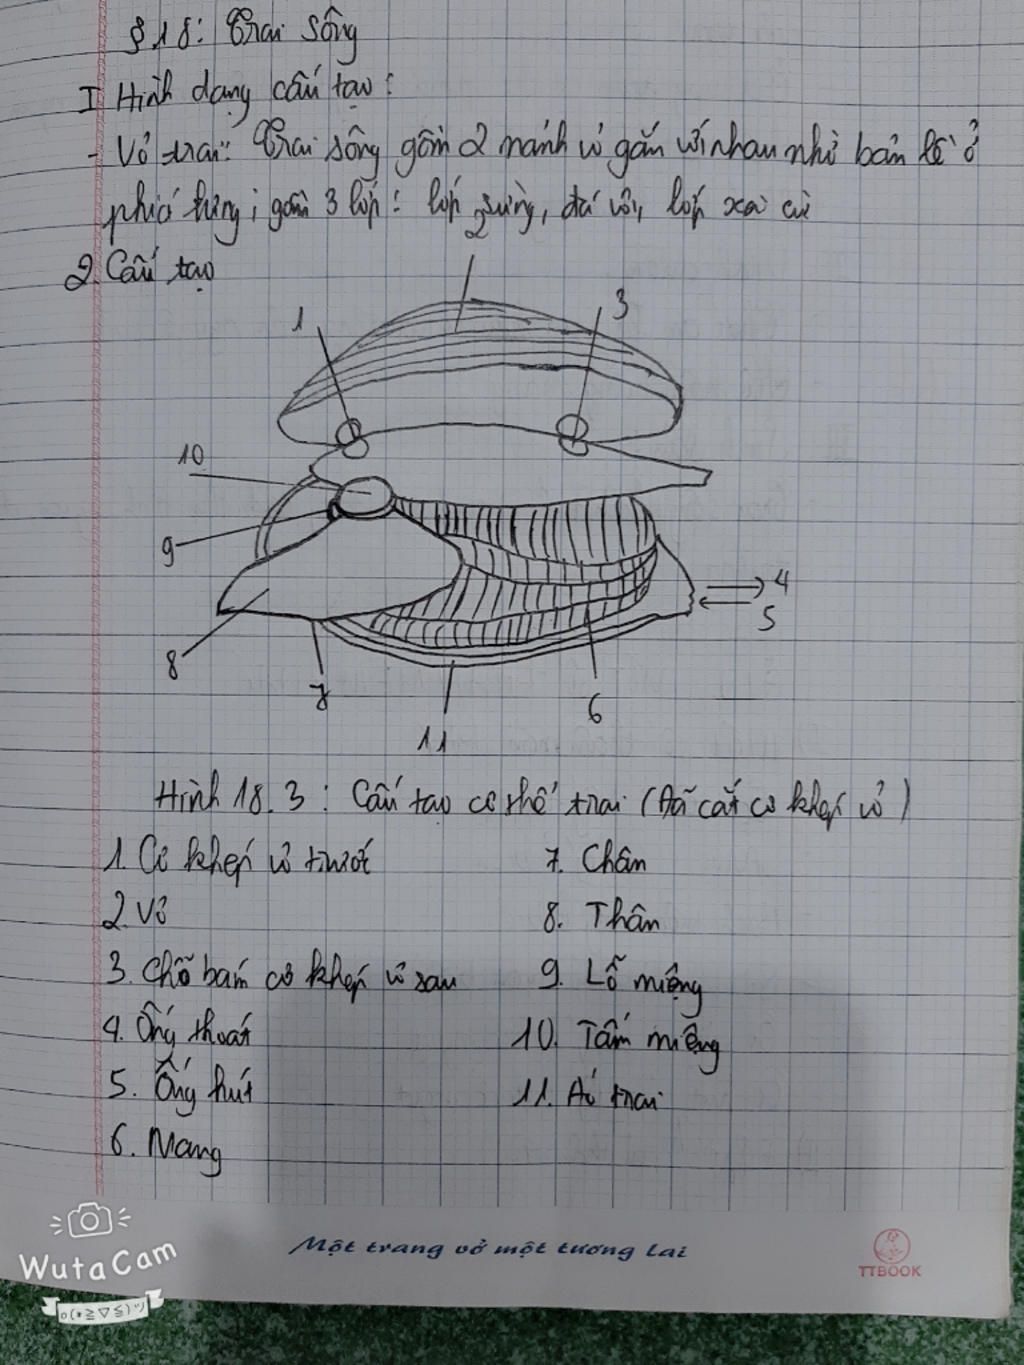 §18: Trai sông
I Hình dạng cấu tạo:
- Vỏ trai: Trai sông gồm 2 mảnh vỏ gắn với nhau nhờ bản lề ở
phía lưng; gồm 3 lớp: lớp sừng, đá vôi, lớp xà cừ
2. Cấu tạo
2
1
3
10
9
4
5
8
7
6
11
Hình 18.3: Cấu tạo cơ thể trai (Đã cắt cơ khép vỏ)
1. Cơ khép vỏ trước
7. Chân
2. Vỏ
8. Thân
3. Chỗ bám cơ khép vỏ sau
9. Lỗ miệng
4. Ống thoát
10. Tấm miệng
5. Ống hút
11. Áo trai
6. Mang
Một trang vở một tương lai
TTBOOK
WutaCam